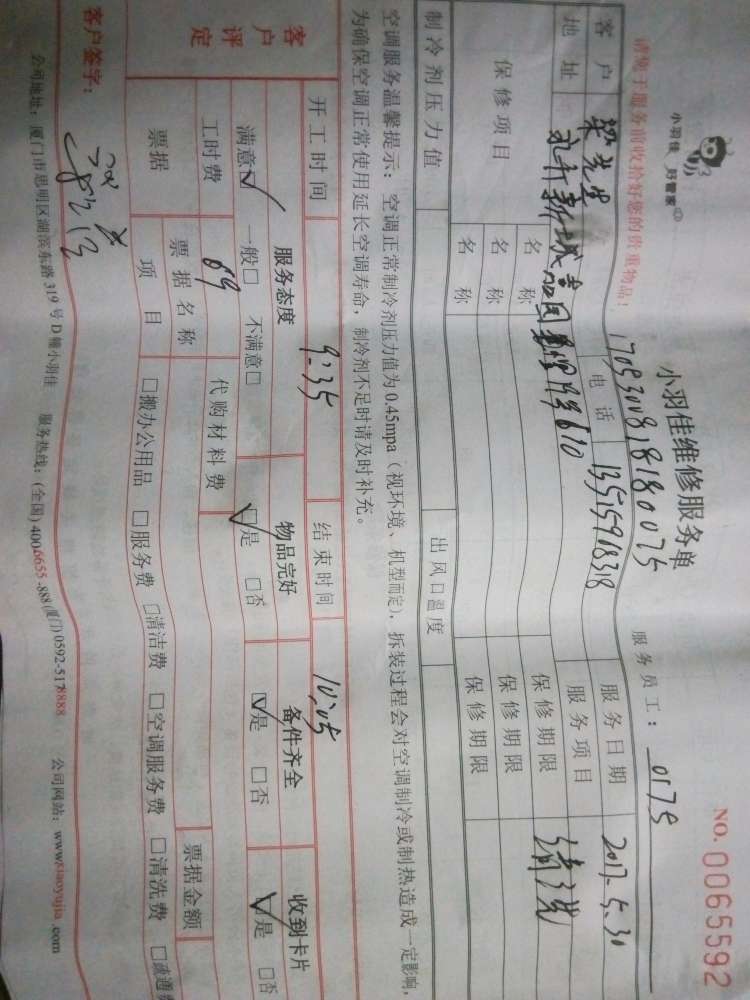 小羽佳 好管家
小羽佳维修服务单
NO.0065592
请您于服务前收拾好您的贵重物品!
1705300818180075
服务员工: 0175
客户 梁先生 电话 13515918318 服务日期 2017.5.30
地址 服务项目 清洗
保修项目 名称 保修期限
名称 保修期限
名称 保修期限
制冷剂压力值 出风口温度
空调服务温馨提示: 空调正常制冷剂压力值为0.45mpa(视环境、机型而定), 拆装过程会对空调制冷或制热造成一定影响,
为确保空调正常使用延长空调寿命, 制冷剂不足时请及时补充。
开工时间 9:35 结束时间 10:05
客户评定 服务态度 物品完好 备件齐全 收到卡片
满意☑ 一般□ 不满意□ ☑是 □否 ☑是 □否 ☑是 □否
工时费 69 代购材料费
票据 票据名称 票据金额
项目 □搬办公用品 □服务费 □清洁费 □空调服务费 □清洗费 □疏通费
客户签字:
公司地址: 厦门市思明区湖滨东路319号D幢小羽佳 服务热线: (全国)4006655-888(厦门)0592-5178888 公司网站: www.xiaoyujia.com